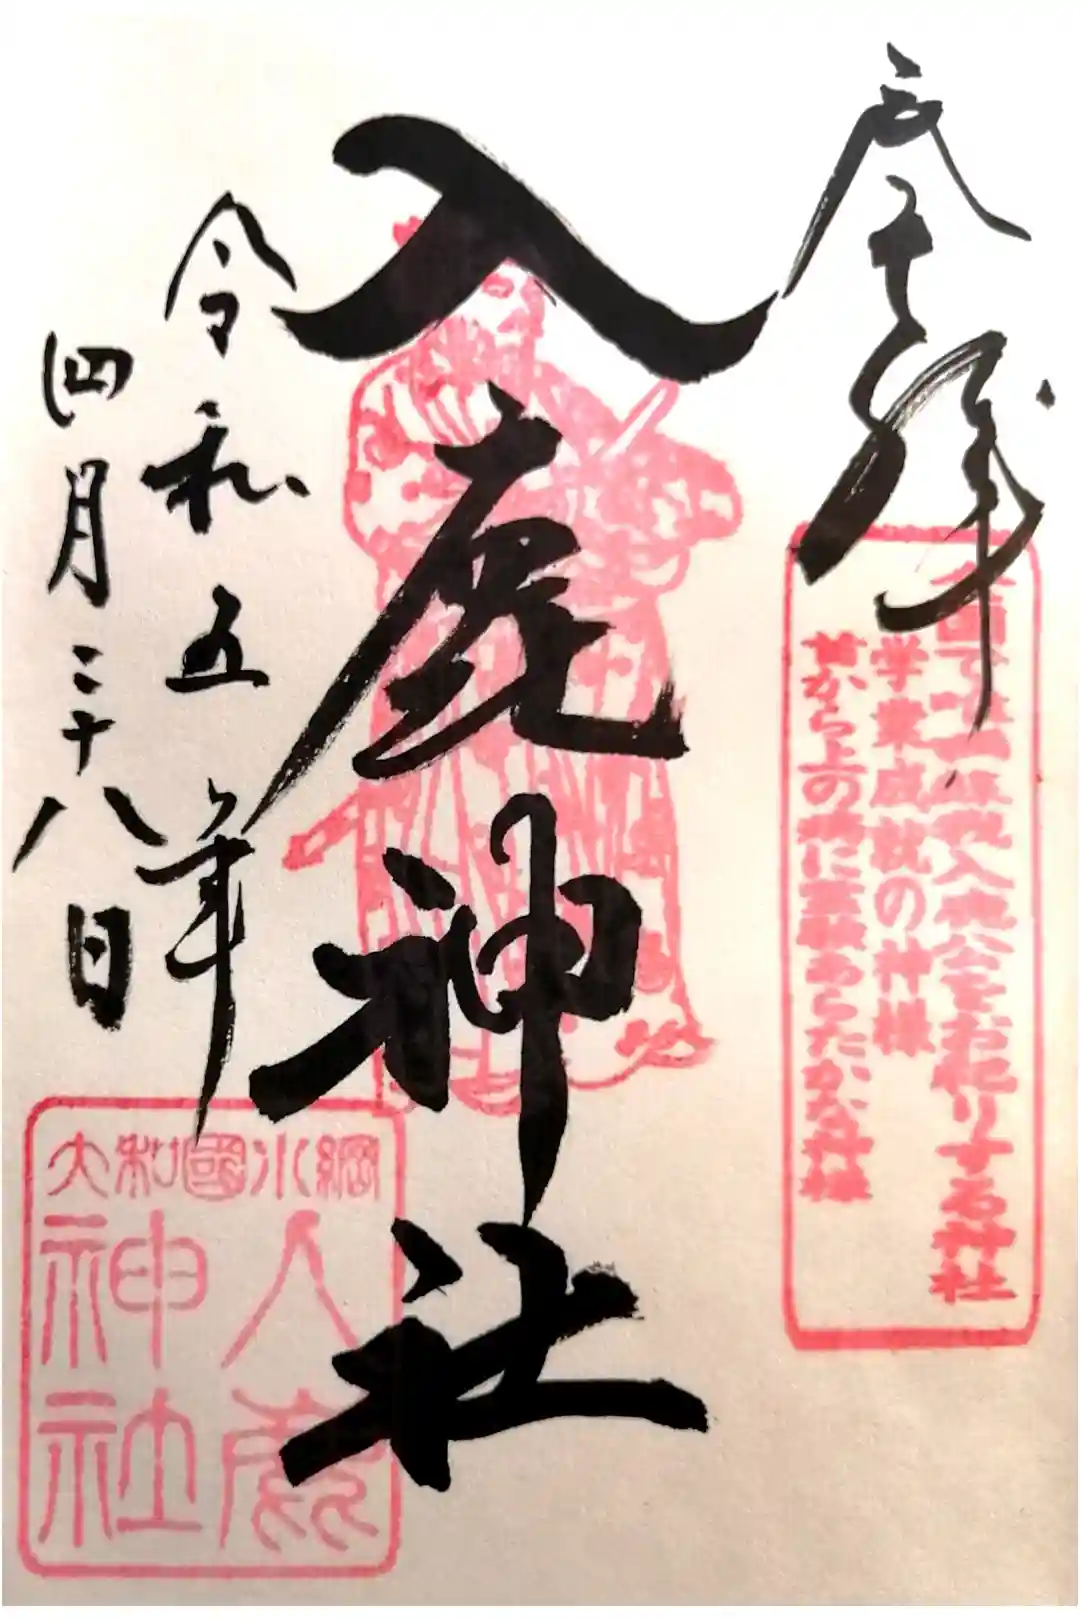 奉拝
全国で唯一蘇我入鹿公をお祀りする神社
学業成就の神様
首から上の病に霊験あらたかな神様
入鹿神社
令和五年
四月二十八日
大和國小綱
入鹿
神社